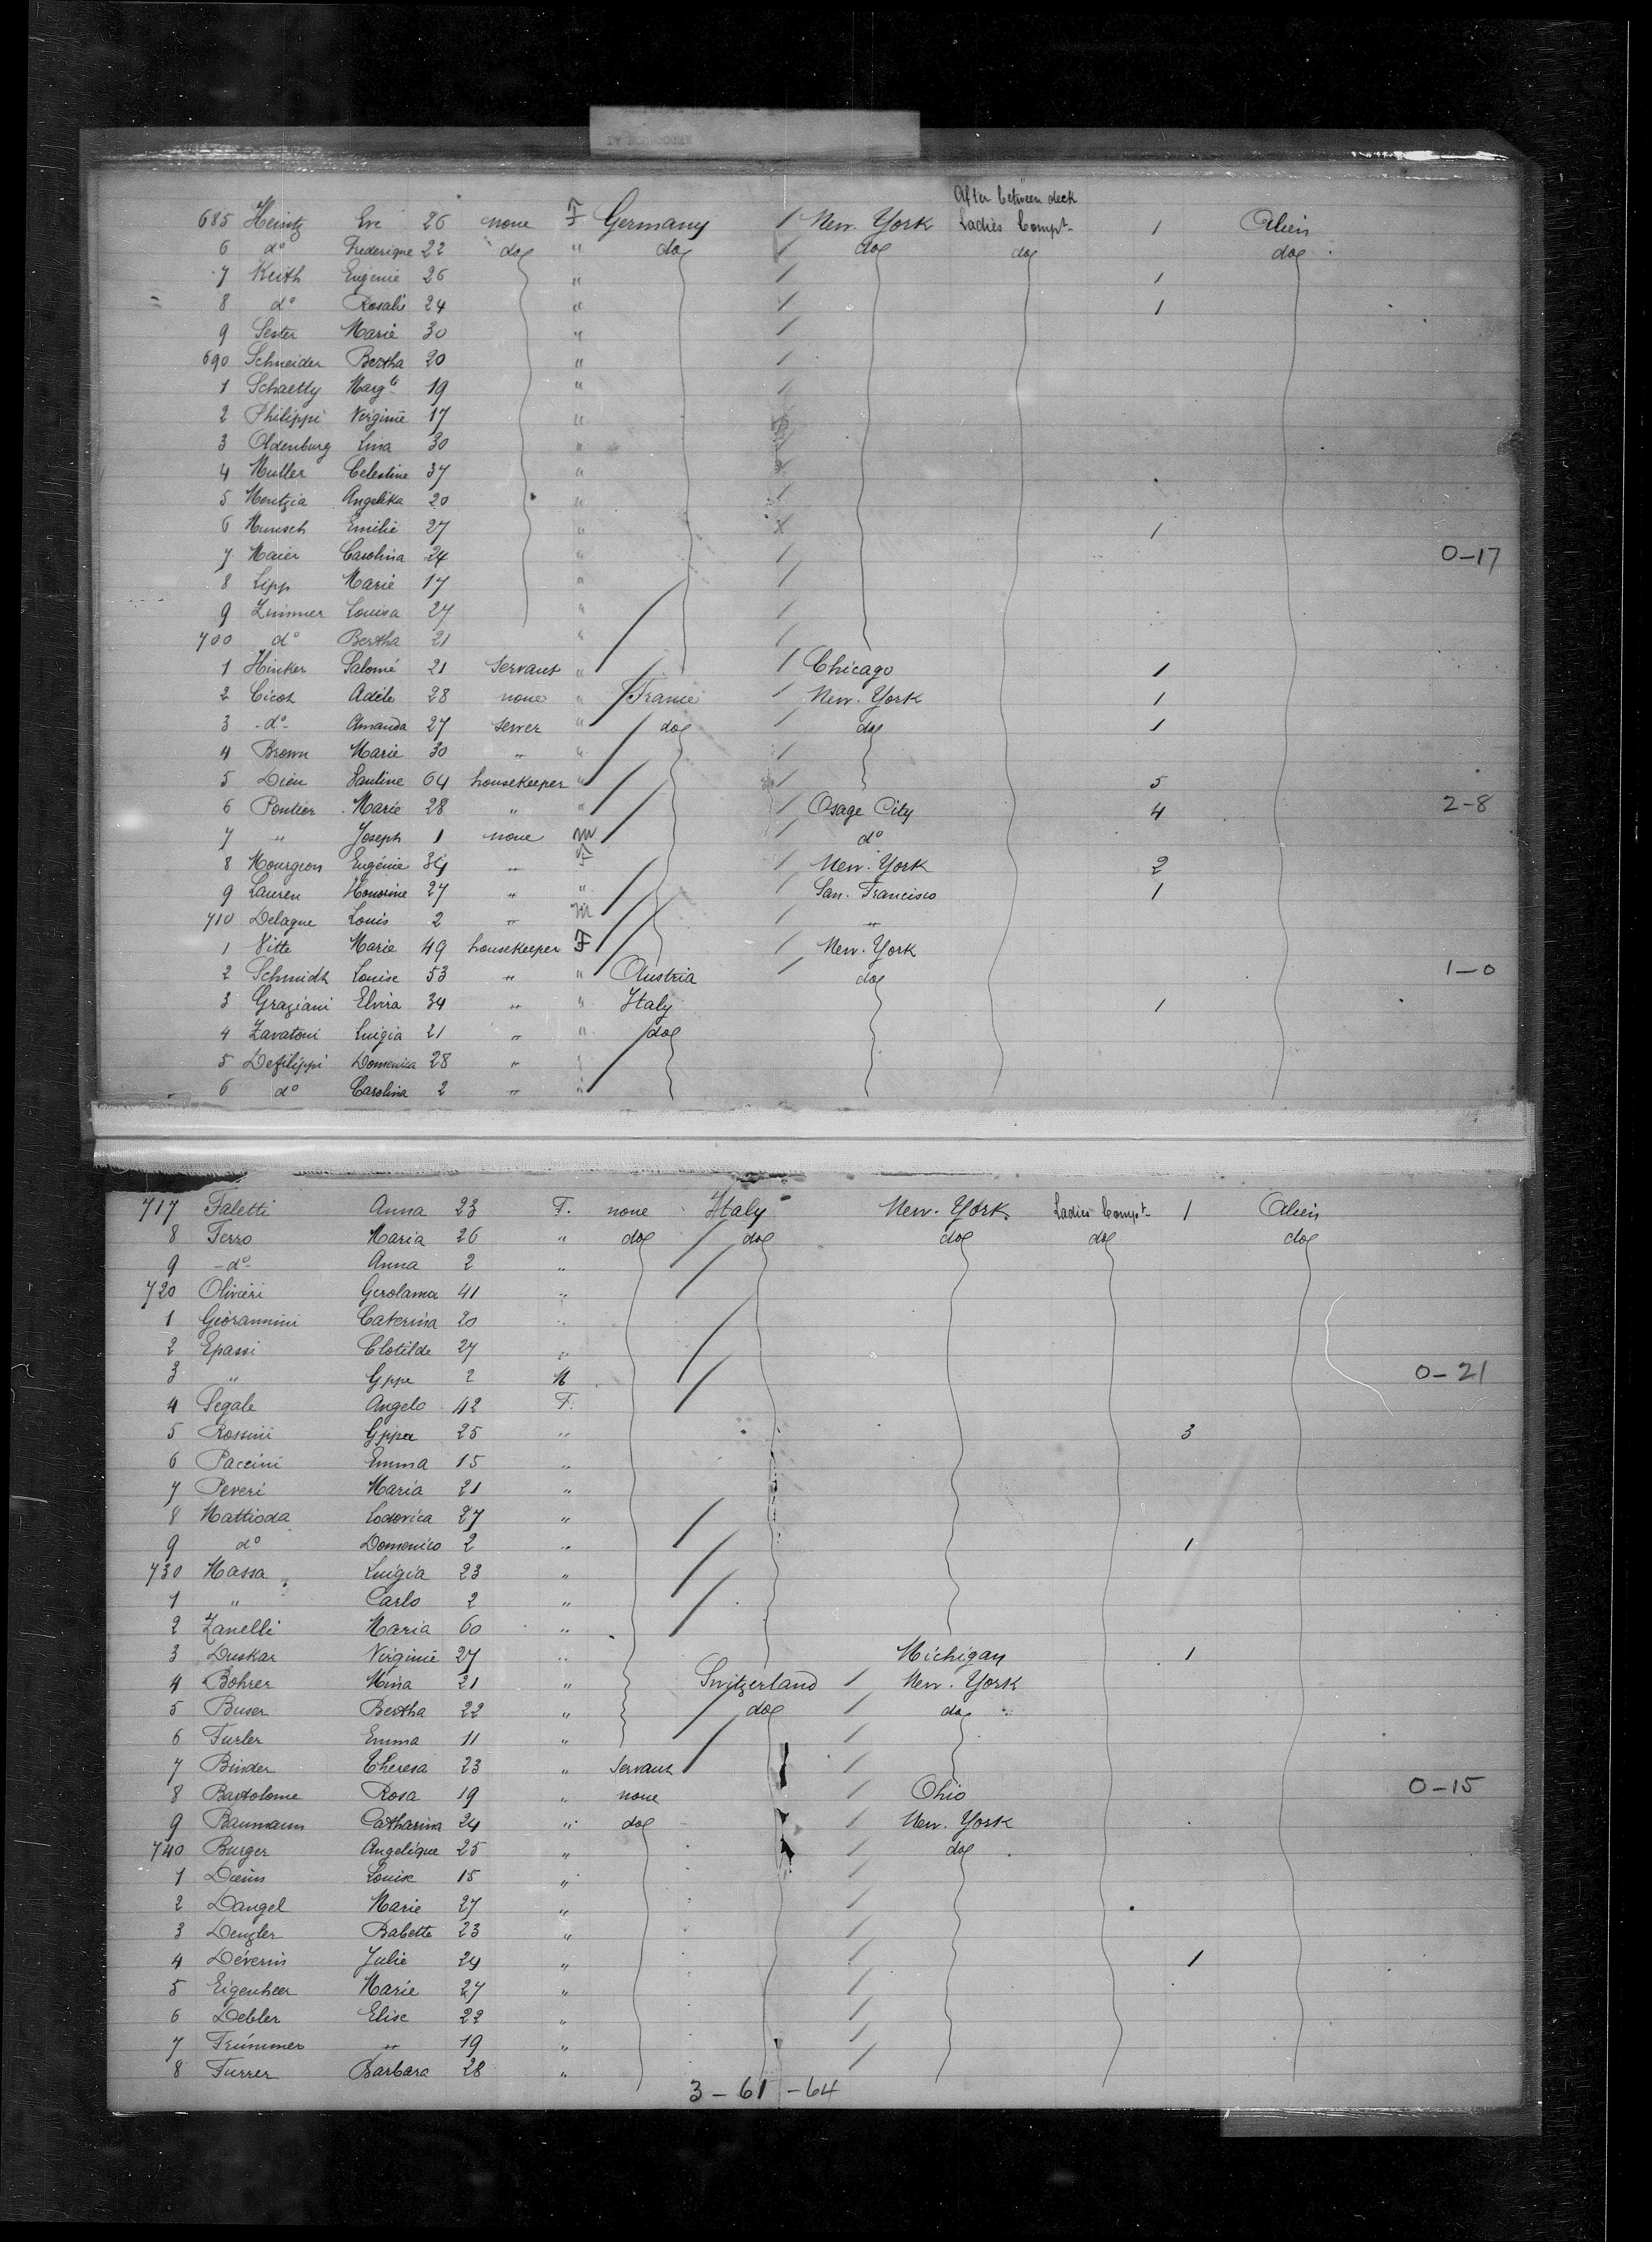 After between deck
685 Heintz Eve 26 none F Germany / New. York Ladies Compt. 1 Alien
6 do Frederique 22 do " do / do do do
7 Keith Eugenie 26 " / 1
8 do Rosalie 24 " / 1
9 Sester Marie 30 " /
690 Schneider Bertha 20 " /
1 Schaetty Margte 19 " /
2 Philippi Virginie 17 "
3 Oldenburg Lina 30 "
4 Muller Celestine 37 "
5 Mentzia Angelika 20 " /
6 Munsch Emilie 27 " x 1
7 Maier Carolina 24 " / 0-17
8 Lipp Marie 17 " /
9 Zimmer Louisa 27 " /
700 do Bertha 21 " /
1 Hinker Salomé 21 Servant " / Chicago 1
2 Cicot Adèle 28 none " France / New. York 1
3 do Amanda 27 Sewer " do / do 1
4 Brown Marie 30 " " /
5 Dieu Pauline 64 housekeeper " / 5
6 Pontier Marie 28 " " / Osage City 4 2-8
7 " Joseph 1 none M / do
8 Mourgeon Eugénie 34 " F / New. York 2
9 Lauren Honorine 27 " " / San. Francisco 1
710 Delagne Louis 2 " M / "
1 Vitte Marie 49 housekeeper F / New. York
2 Schmidt Louise 53 " " Austria / do 1-0
3 Graziani Elvira 34 " " Italy 1
4 Zavatoni Luigia 21 " " do
5 Defilippi Domenica 28 " "
6 do Carolina 2 " "
717 Faletti Anna 23 F. none Italy New. York. Ladies Compt. 1 Alien
8 Ferro Maria 26 " do do do do do
9 do Anna 2 "
720 Olivieri Gerolama 41 "
1 Giorannini Caterina 20 "
2 Epassi Clotilde 27 "
3 " Gppe 2 M 0-21
4 Segale Angelo 42 F.
5 Rossini Gppa 25 " 3
6 Paccini Emma 15 "
7 Peveri Maria 21 "
8 Mattioda Lodovica 27 "
9 do Domenico 2 " 1
730 Massa Luigia 23 "
1 " Carlo 2 "
2 Zanelli Maria 60 "
3 Duskar Virginie 27 " Michigan 1
4 Bohrer Mina 21 " Switzerland / New. York
5 Buser Bertha 22 " do / do
6 Furler Emma 11 " /
7 Binder Theresa 23 " Servant /
8 Bartolome Rosa 19 " none / Ohio 0-15
9 Baumann Catharina 24 " do / New. York
740 Burger Angelique 25 " / do
1 Louise 15 " /
2 Dangel Marie 27 " /
3 Dengler Babette 23 " /
4 Déverin Julie 24 " / 1
5 Eigenheer Marie 27 " /
6 Debler Elise 22 " /
7 Frümmer " 19 " /
8 Furrer Barbara 28 " /
3-61-64